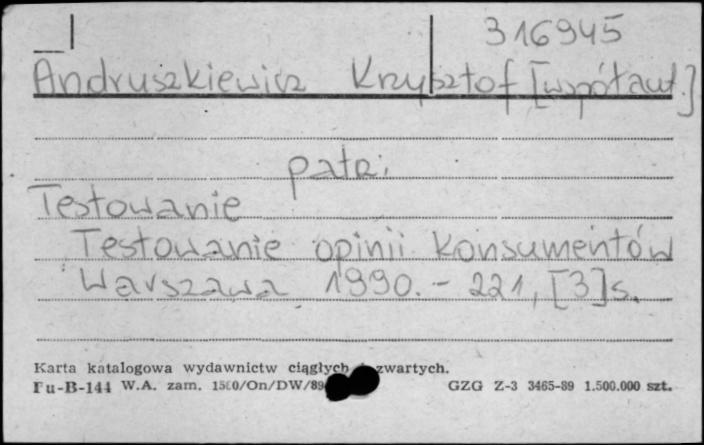 316945
Andruszkiewicz Krzysztof [współaut.]
patrz:
Testowanie
Testowanie opinii konsumentów
Warszawa 1990. - 221, [3]s.
Karta katalogowa wydawnictw ciągłych i zwartych.
Pu-B-144 W.A. zam. 1560/On/DW/89 GZG Z-3 3465-89 1.500.000 szt.